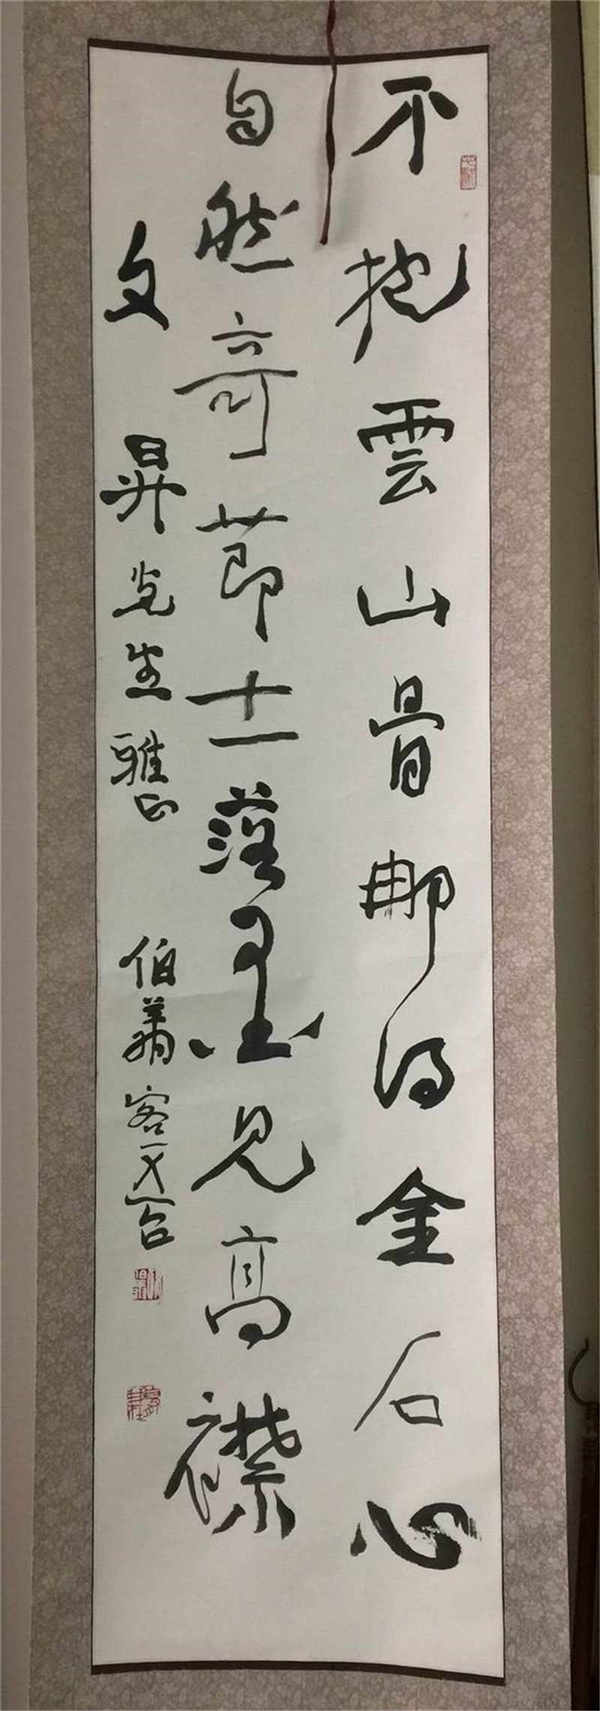 不抱雲山骨那得金石心
自然奇節士落墨見高襟
文昇先生雅正
伯翁客于台